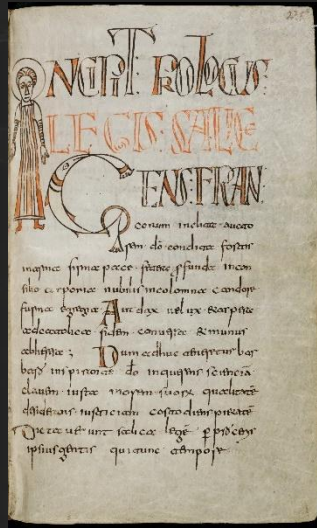 235
INCIPIT PROLOGUS
LEGIS SALICE
GENS FRAN
corum inclita aucto
rem dō condita fortis
in arma firma pace fetera profunda in con
silio corporea nobilis incolomna candore
forma egregia Audax uelox et aspera
ad catholica fidem conuersa emunis
ab heresa ; Dum adhuc teneretur bar
bara inspirante dō inquerens sciencia
clauem iusta morem suorum qualitatē
desiderans iusticiam costodiens pietatē
Dictauerunt salica legē
ipsius gentis qui tunc tempore